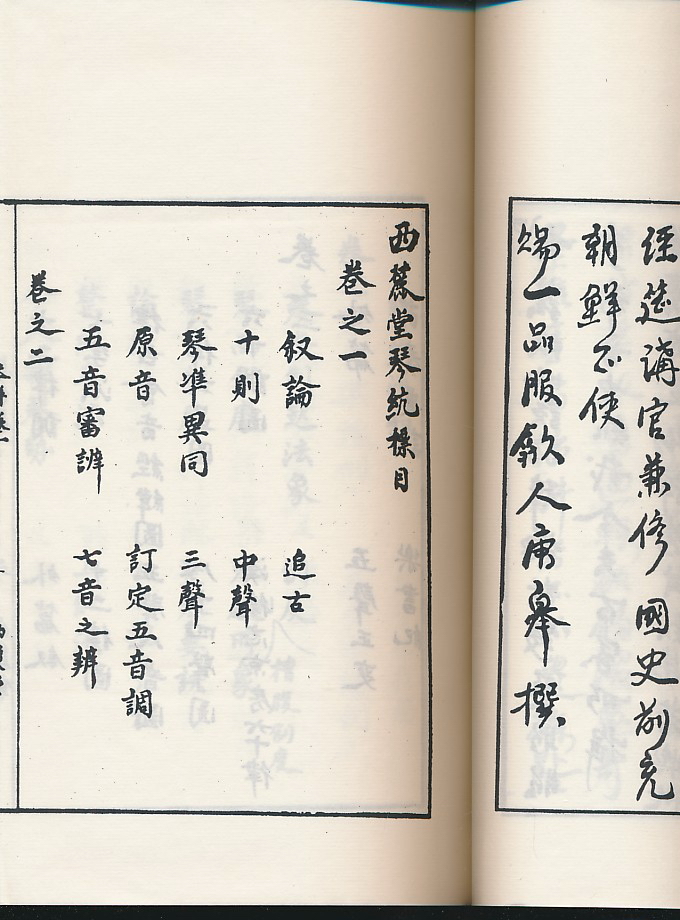 經筵講官兼修 國史前充
朝鮮正使
賜一品服歙人唐皋撰
西麓堂琴統標目
卷之一
叙論 追古
十則 中聲
琴準異同 三聲
原音 訂定五音調
五音審辨 七音之辨
卷之二